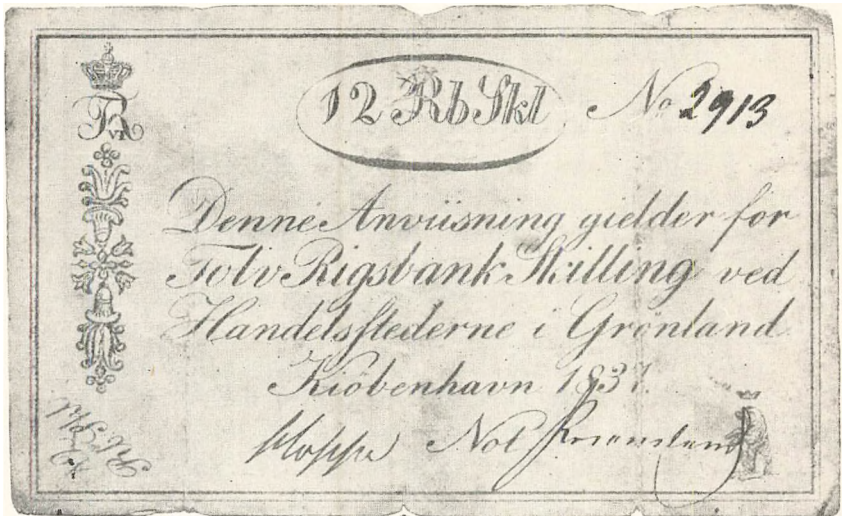 12 RbSkl No 2913
Denne Anviisning gielder for
Tolv Rigsbank Skilling ved
Handelsstederne i Grønland
Kiöbenhavn 1837.
Not